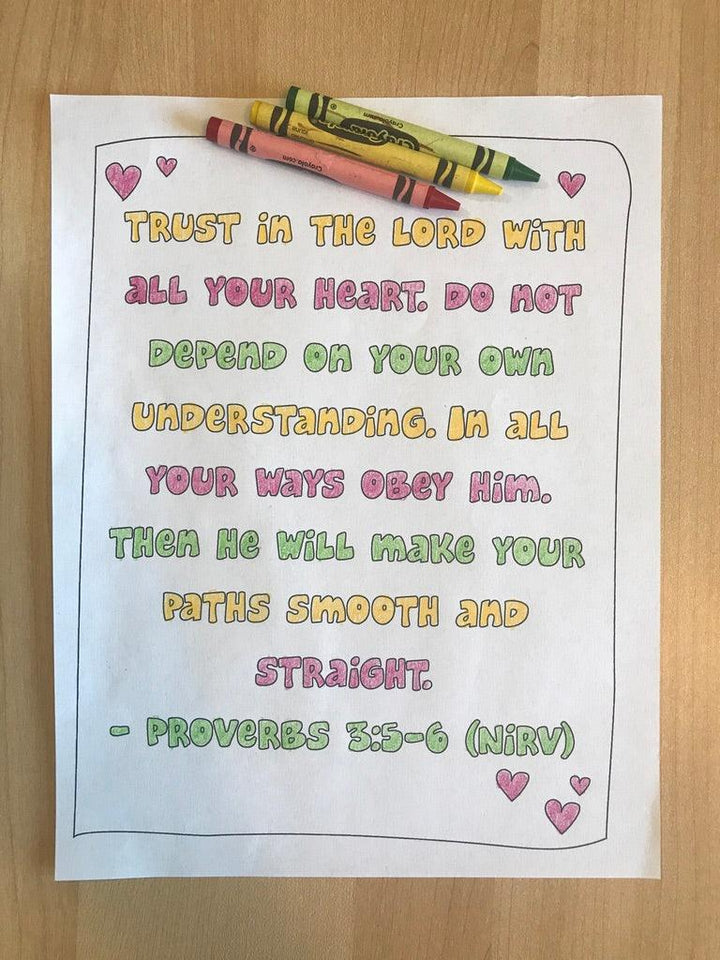 Crayola
Crayola.com
TRUST in THE LORD WiTH
all YOUR HeaRT. DO noT
DePenD on YOUR Own
UnDeRSTanDinG. In all
YOUR Ways OBey Him.
THen He WiLL make YOUR
PaTHS SmOOTH anD
STRaiGHT.
- PROVeRBS 3:5-6 (NiRV)